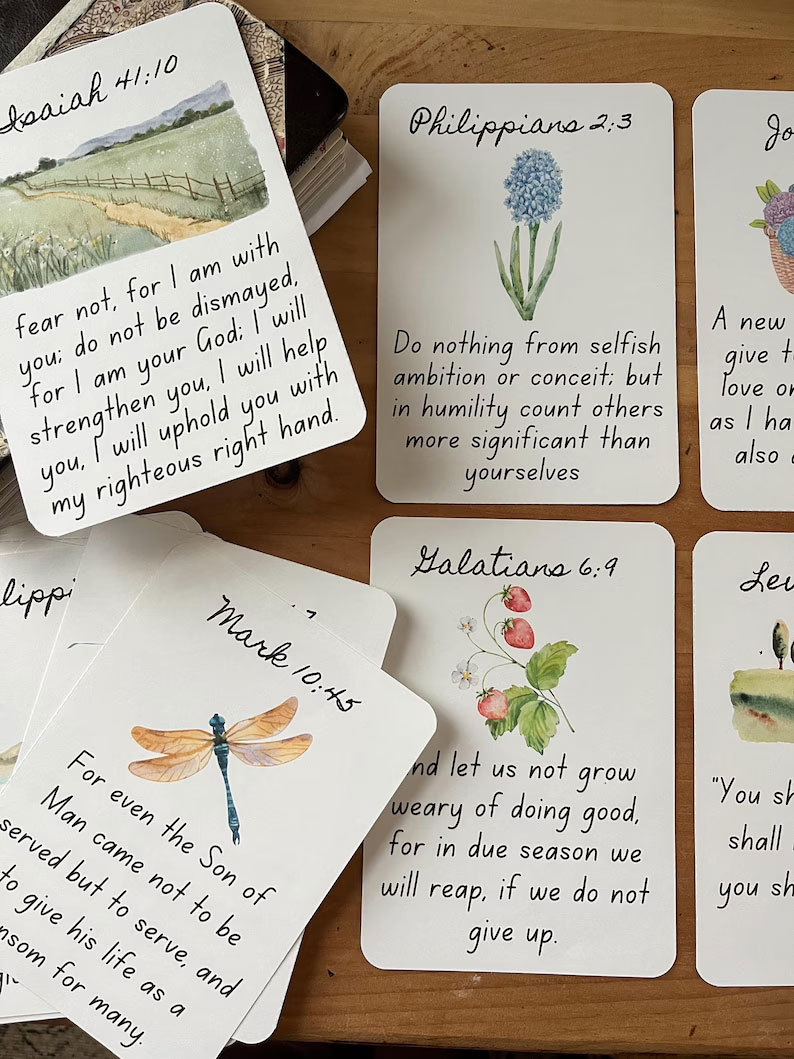 Isaiah 41:10
fear not, for I am with
you; do not be dismayed,
for I am your God; I will
strengthen you, I will help
you, I will uphold you with
my righteous right hand.
Philippians 2:3
Do nothing from selfish
ambition or conceit; but
in humility count others
more significant than
yourselves
Jo
A new
give t
love o
as I ha
also
lippi
Mark 10:45
For even the Son of
Man came not to be
served but to serve, and
to give his life as a
nsom for many.
Galatians 6:9
nd let us not grow
weary of doing good,
for in due season we
will reap, if we do not
give up.
Lev
"You sh
shall
you sh